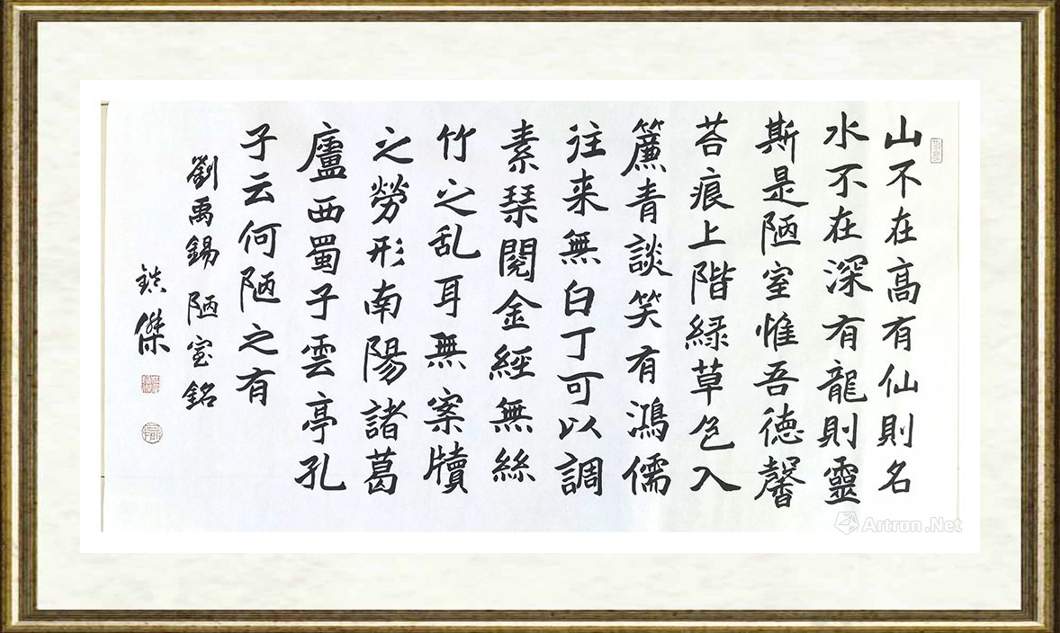 山不在高有仙則名
水不在深有龍則靈
斯是陋室惟吾德馨
苔痕上階緑草色入
簾青談笑有鴻儒
往来無白丁可以調
素琴閱金經無絲
竹之乱耳無案牘
之勞形南陽諸葛
廬西蜀子雲亭孔
子云何陋之有
劉禹錫 陋室銘
傑
Artron.Net